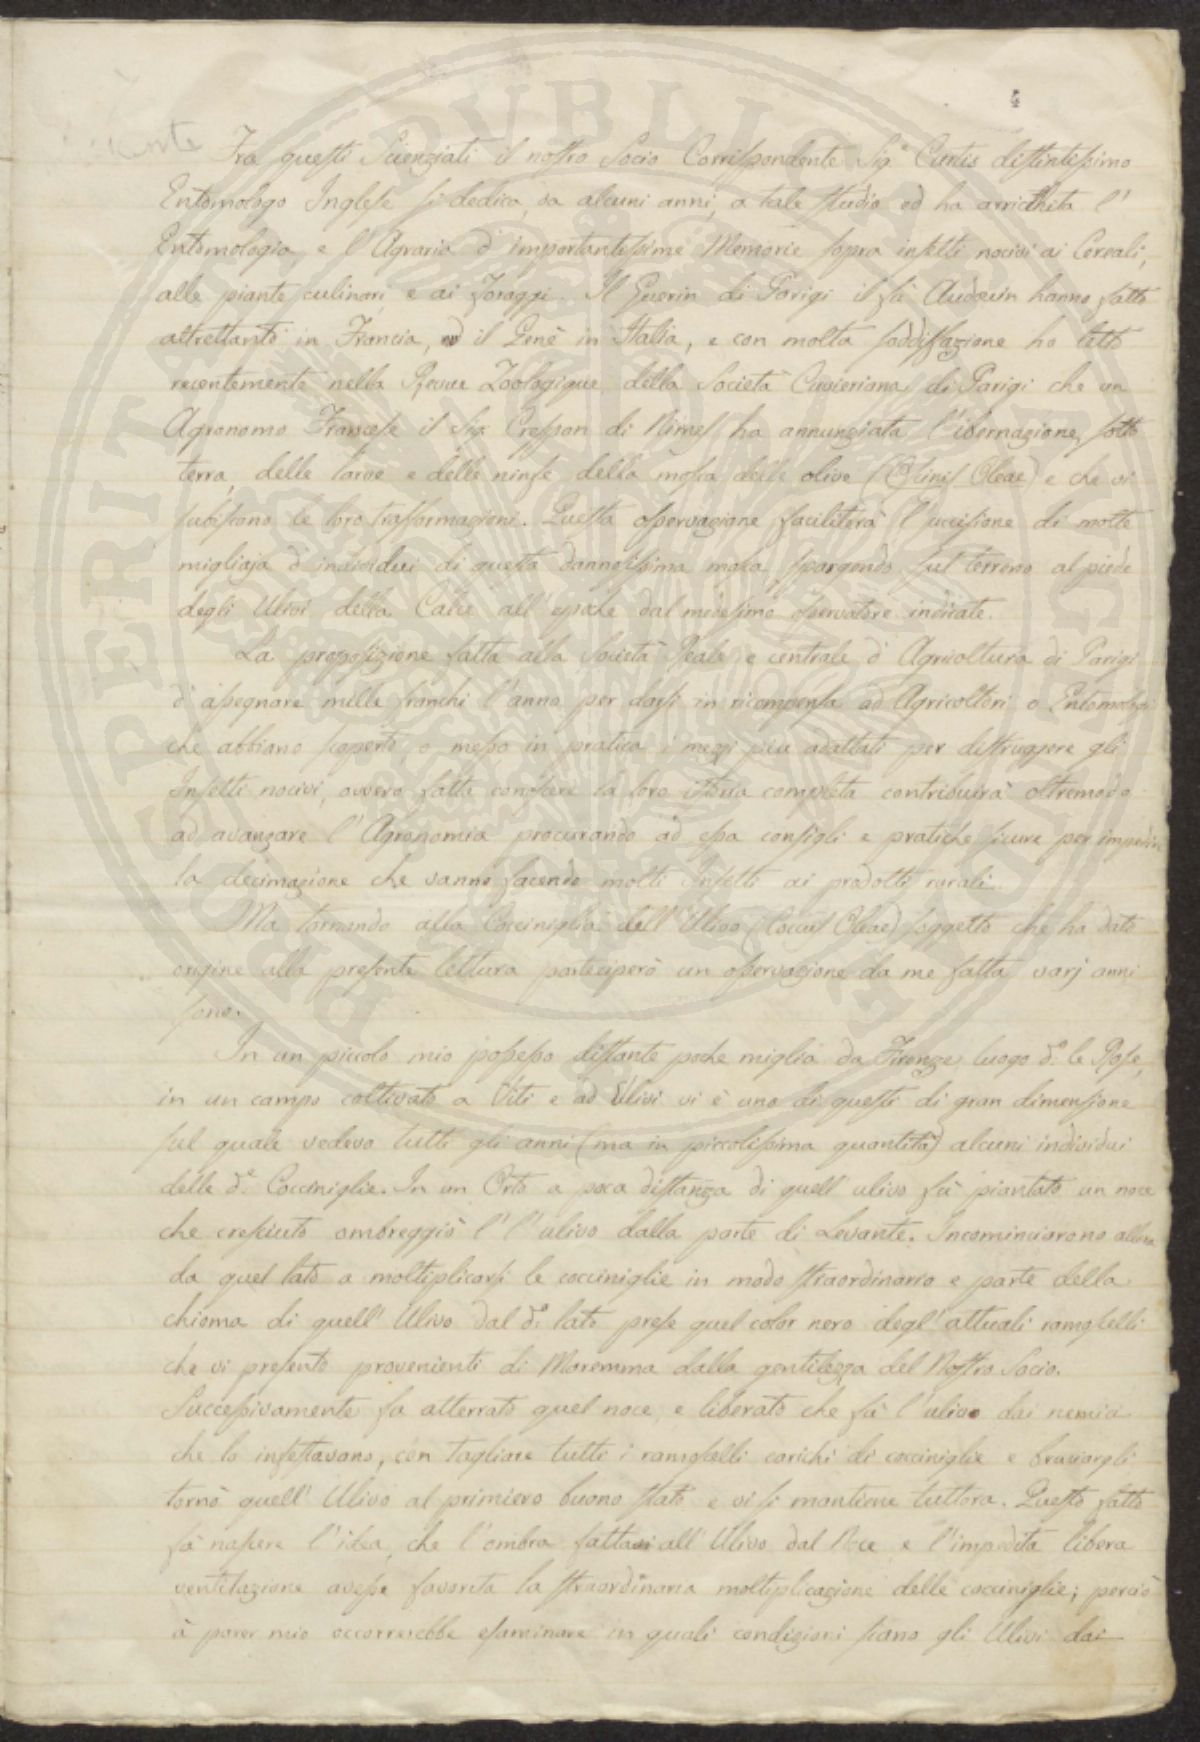 4
Fra questi Scienziati il nostro Socio Corrispondente Sig.e Curtis distintissimo
Entomologo Inglese si dedica, da alcuni anni, a tale studio ed ha arricchita l'
Entomologia, e l'Agraria d'importantissime Memorie sopra insetti nocivi ai Cereali,
alle piante culinari e ai foraggi. Il Guerin di Parigi il fù Audouin hanno fatto
altrettanto in Francia, ed il Genè in Italia, e con molta soddisfazione ho letto
recentemente nella Revue Zoologique della Società Cuvieriana di Parigi che un
Agronomo Francese il Sig. Crespon di Nimes ha annunziata l'ibernazione, sotto
terra, delle larve e delle ninfe della mosca delle olive (Oscinis Oleae) e che vi
subiscono le loro trasformazioni. Questa osservazione faciliterà l'uccisione di molte
migliaja d'individui di questa dannosissima mosca spargendo sul terreno al piede
degli Ulivi della Calce all'epoche dal medesimo osservatore indicate.
La proposizione fatta alla Società Reale e centrale d'Agricoltura di Parigi
d'assegnare mille franchi l'anno per darsi in ricompensa ad Agricoltori o Entomologi
che abbiano scoperto, o messo in pratica i mezzi più adattati per distruggere gli
Insetti nocivi, ovvero fatta conoscere la loro istoria completa contribuirà oltremodo
ad avanzare l'Agronomia procurando ad essa consigli e pratiche sicure per impedire
la decimazione che vanno facendo molti Insetti ai prodotti rurali.
Ma tornando alla Cocciniglia dell'Ulivo (Coccus Oleae) soggetto che ha dato
origine alla presente lettura parteciperò un osservazione da me fatta varj anni
sono.
In un piccolo mio possesso distante poche miglia da Firenze luogo d.o le Rose,
in un campo coltivato a Viti e ad Ulivi vi è uno di questi di gran dimensione
sul quale vedevo tutti gli anni (ma in piccolissima quantità) alcuni individui
delle d.e Cocciniglie. In un Orto a poca distanza di quell'ulivo fù piantato un noce
che cresciuto ombreggiò l'l'ulivo dalla parte di Levante. Incominciarono allora
da quel lato a moltiplicarsi le cocciniglie in modo straordinario e parte della
chioma di quell'Ulivo dal d.o lato prese quel color nero degl'attuali ramoscelli
che vi presento provenienti di Maremma dalla gentilezza del Nostro Socio.
Successivamente fu atterrato quel noce, e liberato che fù l'ulivo dai nemici
che lo infestavano, con tagliare tutti i ramoscelli carichi di cocciniglie e bruciargli
tornò quell'Ulivo al primiero buono stato e vi si mantiene tuttora. Questo fatto
fà nascere l'idea, che l'ombra fattavi all'Ulivo dal Noce e l'impedita libera
ventilazione avesse favorita la straordinaria moltiplicazione delle cocciniglie; perciò
à parer mio occorrerebbe esaminare in quali condizioni siano gli Ulivi dai